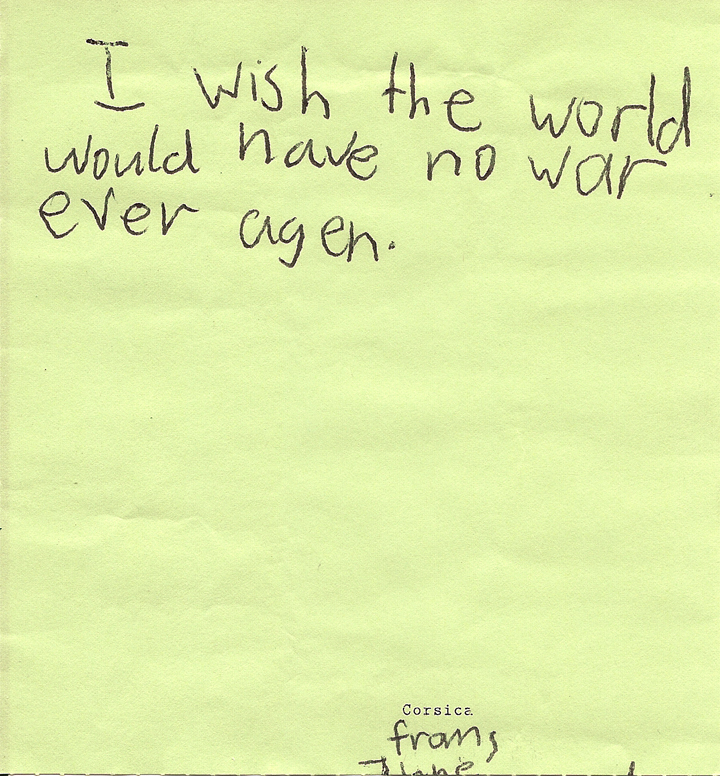 I wish the world
would have no war
ever agen.
Corsica
frans